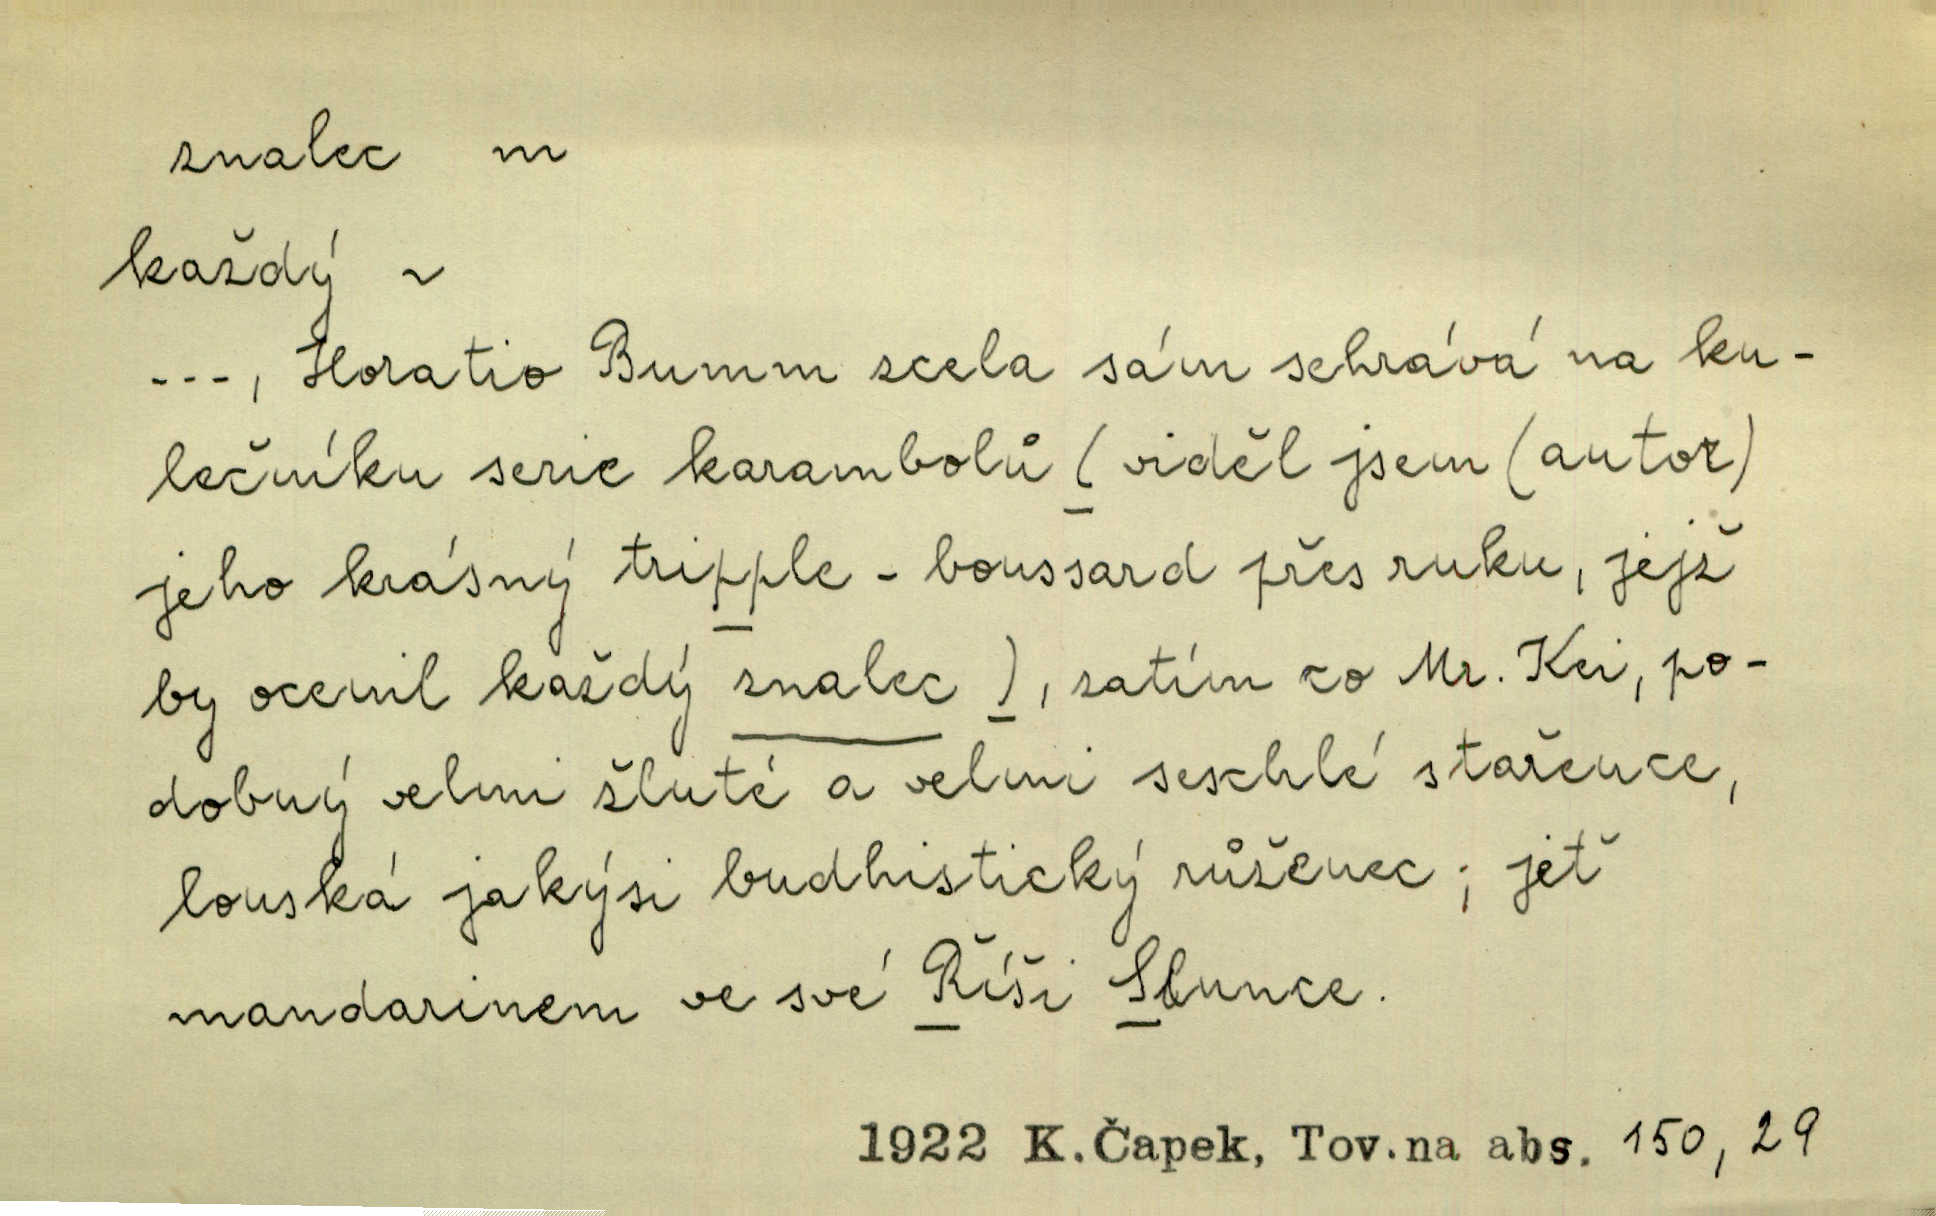 znalec m
každý ~
---, Horatio Bumm zcela sám sehrává na ku-
lečníku serie karambolů ( viděl jsem (autor)
jeho krásný tripple - boussard přes ruku, jejž
by ocenil každý znalec ), zatím co Mr. Kei, po-
dobný velmi žluté a velmi seschlé stařence,
louská jakýsi budhistický růženec ; jeť
mandarinem ve své Říši Slunce.
1922 K.Čapek, Tov.na abs. 150, 29